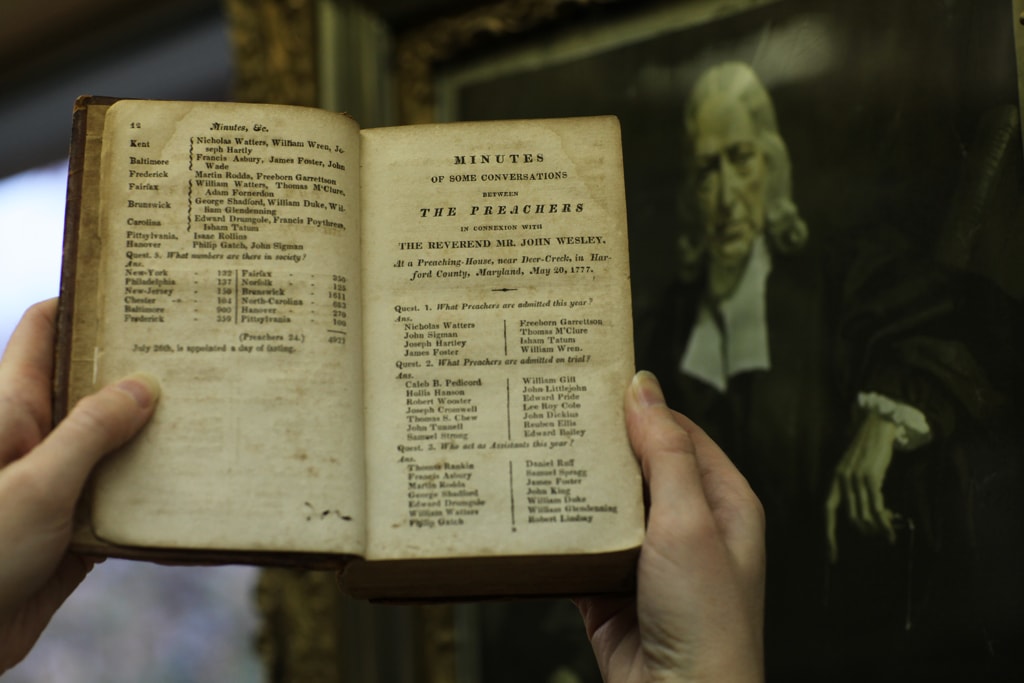 12 Minutes, &c.
Kent { Nicholas Watters, William Wren, Jo-
seph Hartly
Baltimore { Francis Asbury, James Foster, John
Wade
Frederick Martin Rodda, Freeborn Garrettson
Fairfax { William Watters, Thomas M'Clure,
Adam Fornerdon
Brunswick { George Shadford, William Duke, Wil-
liam Glendenning
Carolina { Edward Dromgole, Francis Poythress,
Isham Tatum
Pittsylvania, Isaac Rollins
Hanover Philip Gatch, John Sigman
Quest. 5. What numbers are there in society?
Ans.
New-York - 132 | Fairfax - 350
Philadelphia - 137 | Norfolk - 125
New-Jersey - 150 | Brunswick 1611
Chester - 104 | North-Carolina - 683
Baltimore - 900 | Hanover - 270
Frederick - 359 | Pittsylvania - 100
(Preachers 24.) 4921
July 26th, is appointed a day of fasting.
MINUTES
OF SOME CONVERSATIONS
BETWEEN
THE PREACHERS
IN CONNEXION WITH
THE REVEREND MR. JOHN WESLEY.
At a Preaching-House, near Deer-Creek, in Har-
ford County, Maryland, May 20, 1777.
Quest. 1. What Preachers are admitted this year?
Ans.
Nicholas Watters | Freeborn Garrettson
John Sigman | Thomas M'Clure
Joseph Hartley | Isham Tatum
James Foster | William Wren.
Quest. 2. What Preachers are admitted on trial?
Ans.
Caleb B. Pedicord | William Gill
Hollis Hanson | John Littlejohn
Robert Wooster | Edward Pride
Joseph Cromwell | Lee Roy Cole
Thomas S. Chew | John Dickins
John Tunnell | Reuben Ellis
Samuel Strong | Edward Bailey
Quest. 3. Who act as Assistants this year?
Ans.
Thomas Rankin | Daniel Ruff
Francis Asbury | Samuel Spragg
Martin Rodda | James Foster
George Shadford | John King
Edward Dromgole | William Duke
William Watters | William Glendenning
Philip Gatch | Robert Lindsay